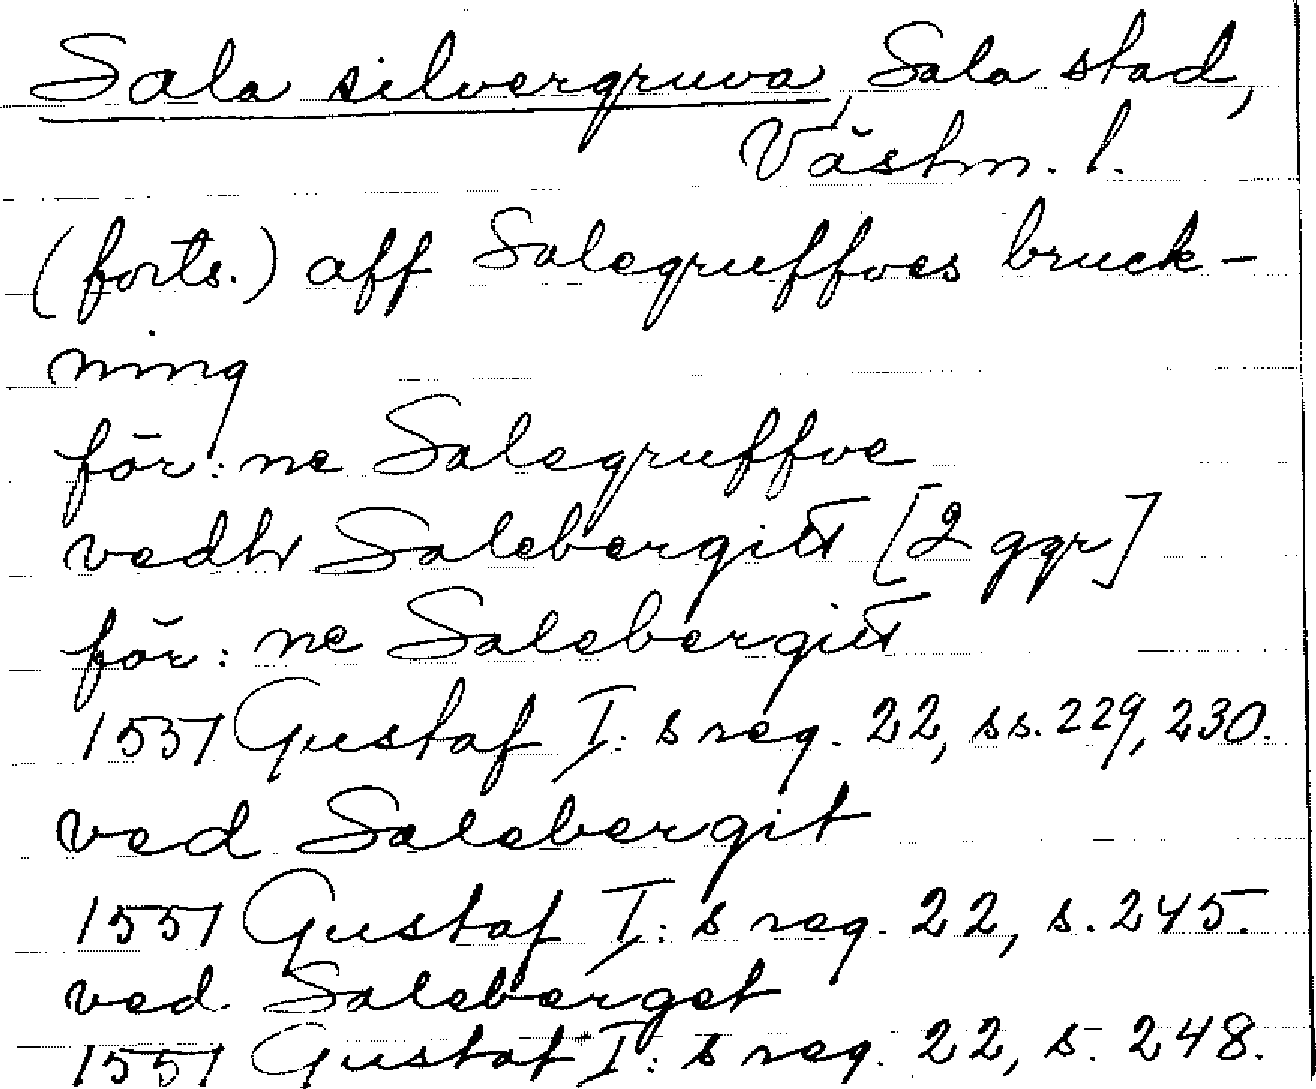 Sala silvergruva, Sala stad,
Västm. l.
(forts.) aff Salegruffves bruck-
ning
för:ne Salegruffve
vedh Salebergitt [2 ggr]
för:ne Salebergitt
1551 Gustaf I:s reg. 22, ss. 229, 230.
ved Salebergit
1551 Gustaf I:s reg. 22, s. 245.
ved Saleberget
1551 Gustaf I:s reg. 22, s. 248.